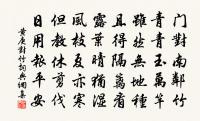 門對南鄰竹
青青玉萬竿
雖然無地種
且得隔籬看
露葉朝猶濕
風枝夏亦寒
但教休剪伐
日用報平安
黄庚對竹詞典網書